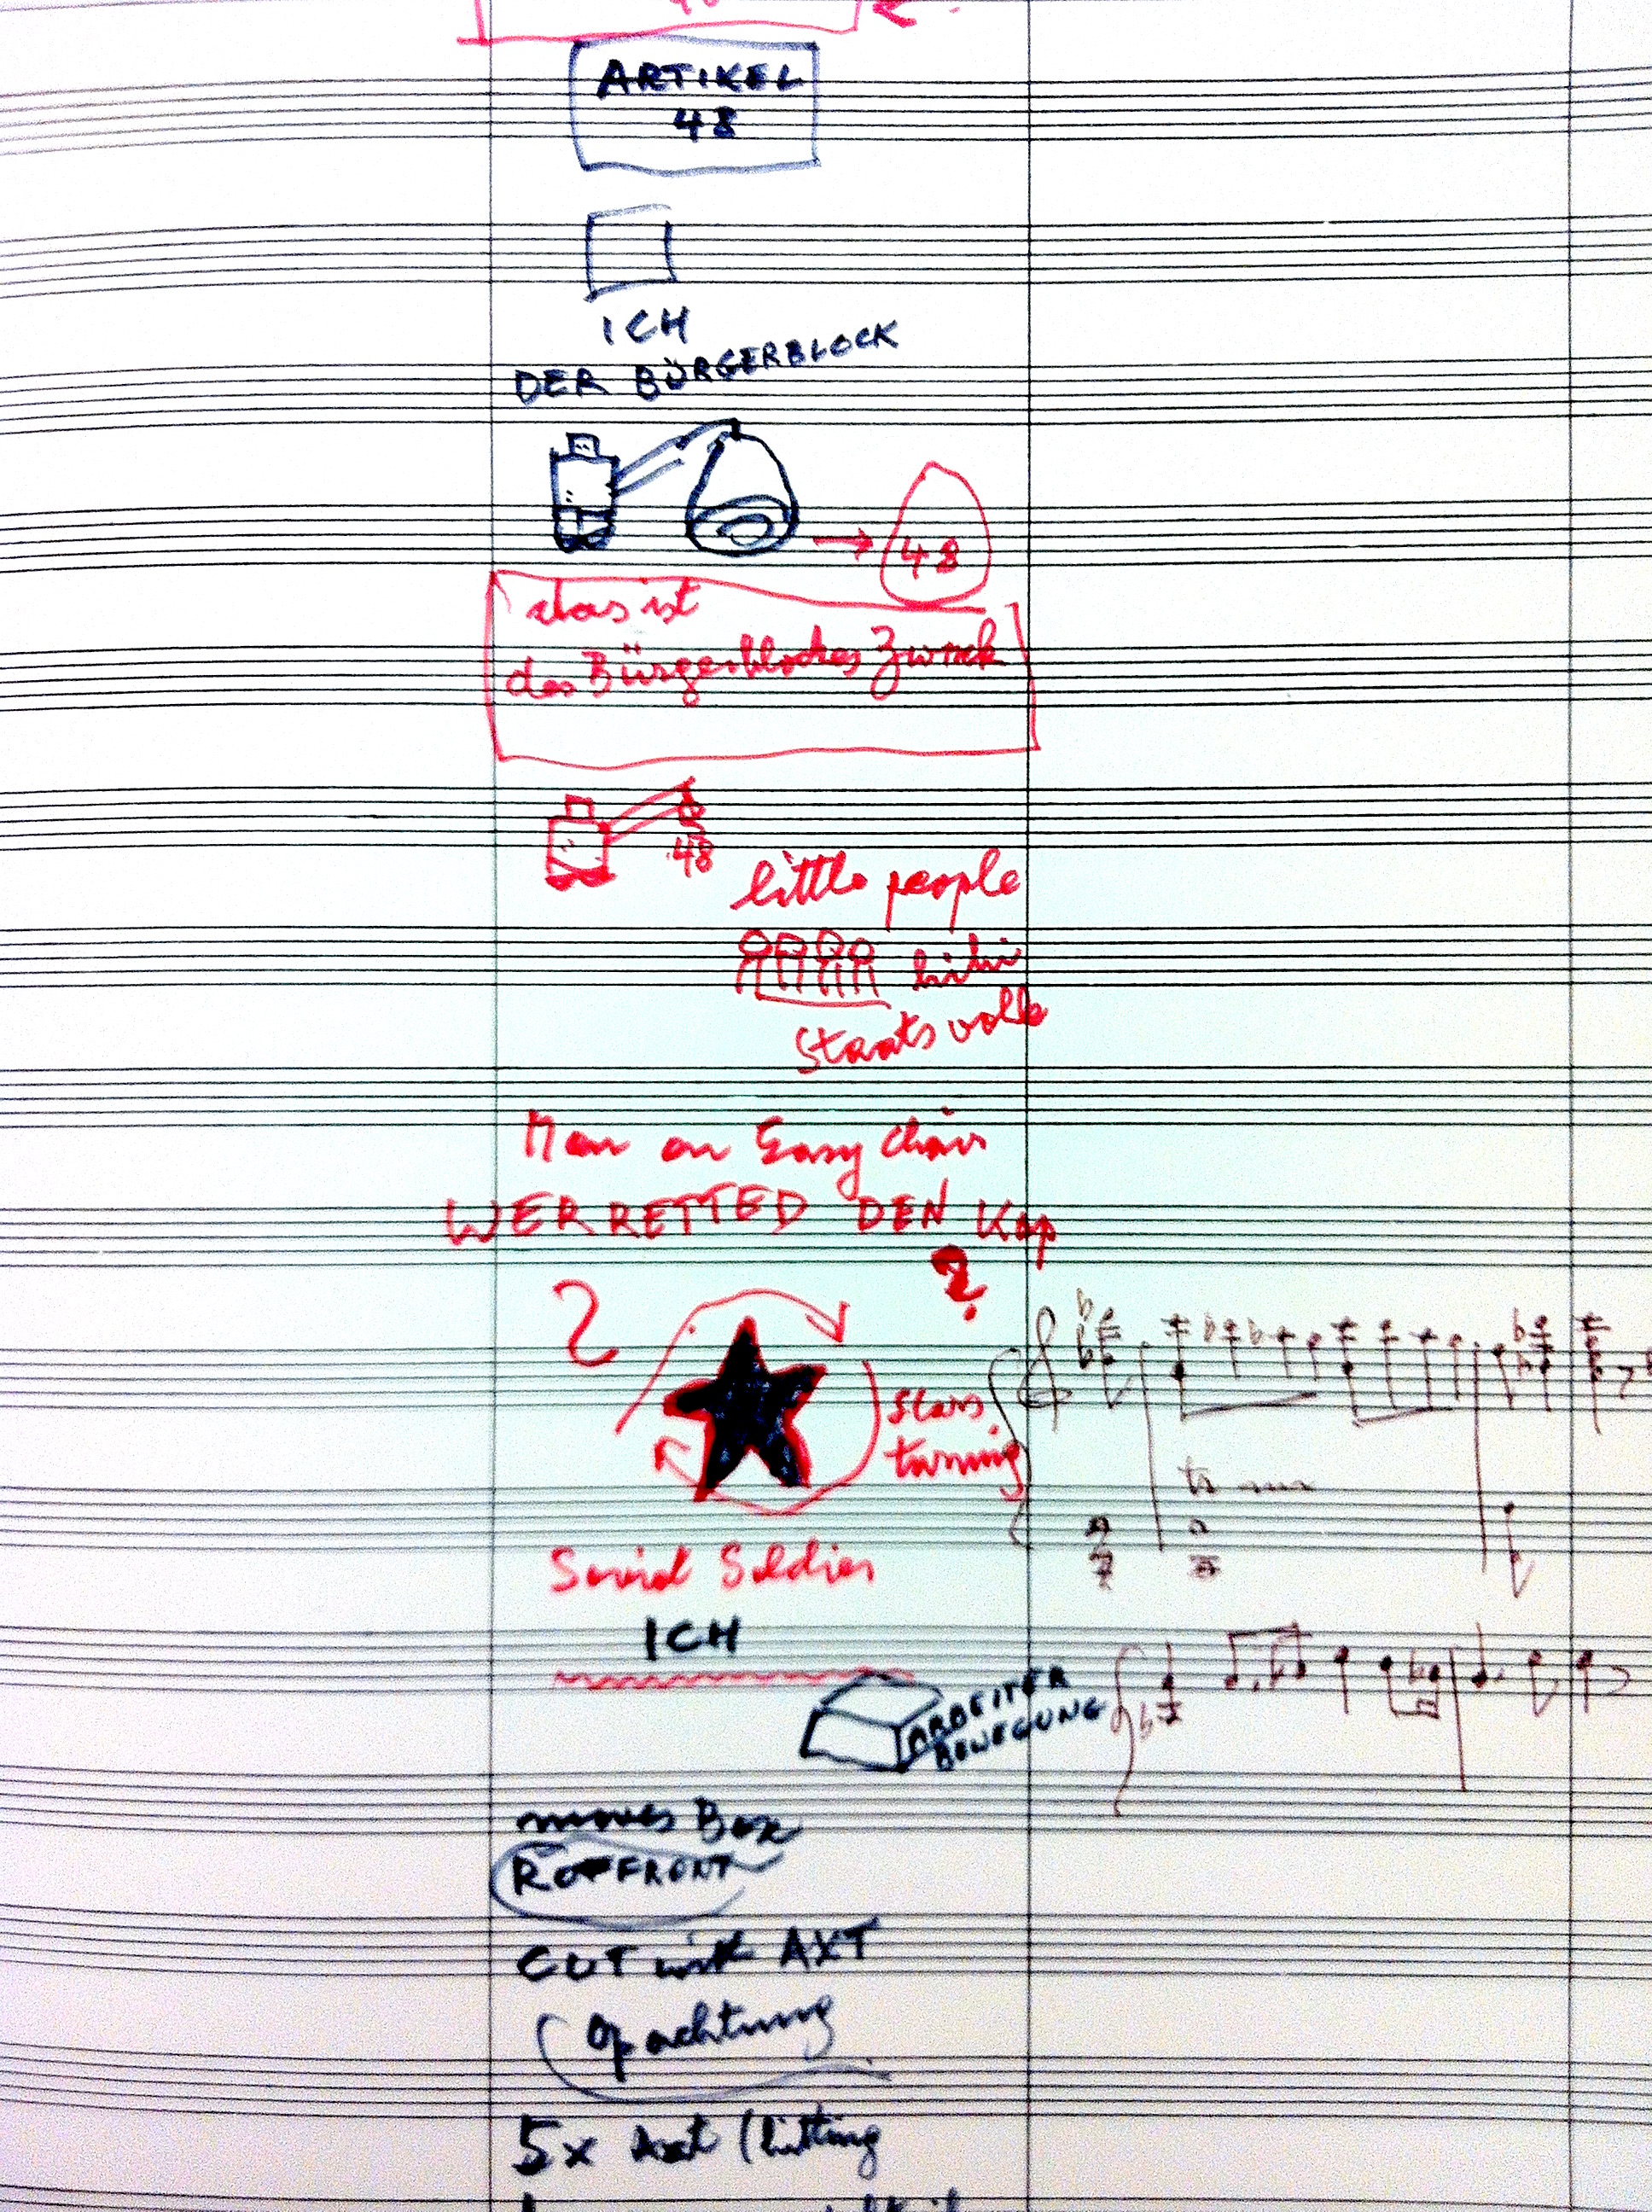 ARTIKEL
48
ICH
DER BÜRGERBLOCK
48
das ist
des Bürgerblockes Zweck
48
little people
hihi
Staats volle
Man on Easy chair
WER RETTED DEN Kap
?
2
stars
turning
tr
Soviet Soldier
ICH
ARBEITER
BEWEGUNG
moves Box
ROTFRONT
CUT with AXT
Op achtung
5x Axt (hitting